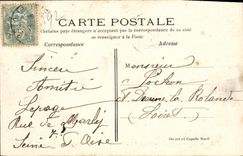 CARTE POSTALE
Certains pays étrangers n'acceptent pas la correspondance de ce côté
se renseigner à la Poste
Correspondance
Adresse
Sincère
Amitié
Lepage
Rue de Marly
Seine & Oise
Monsieur
Beaune la Rolande
Loiret